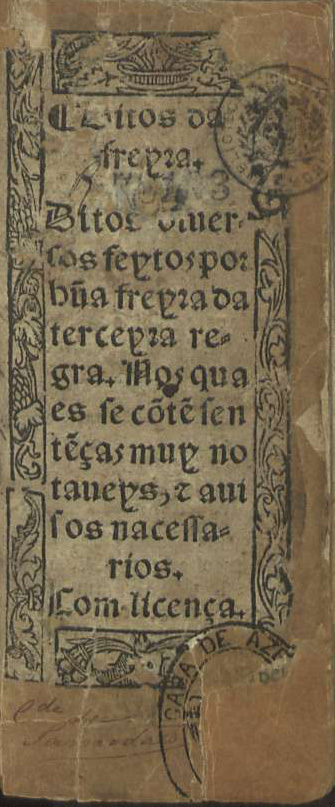 ¶ Ditos da
freyra.
Ditos diuer-
sos feytos por
hũa freyra da
terceyra re-
gra. Nos qua
es se cõtẽ sen
tẽças muy no
taueys, ⁊ aui
sos nacessa-
rios.
Com licença.
CASA DE
C de de